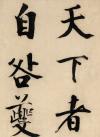 天下者
自咎夔